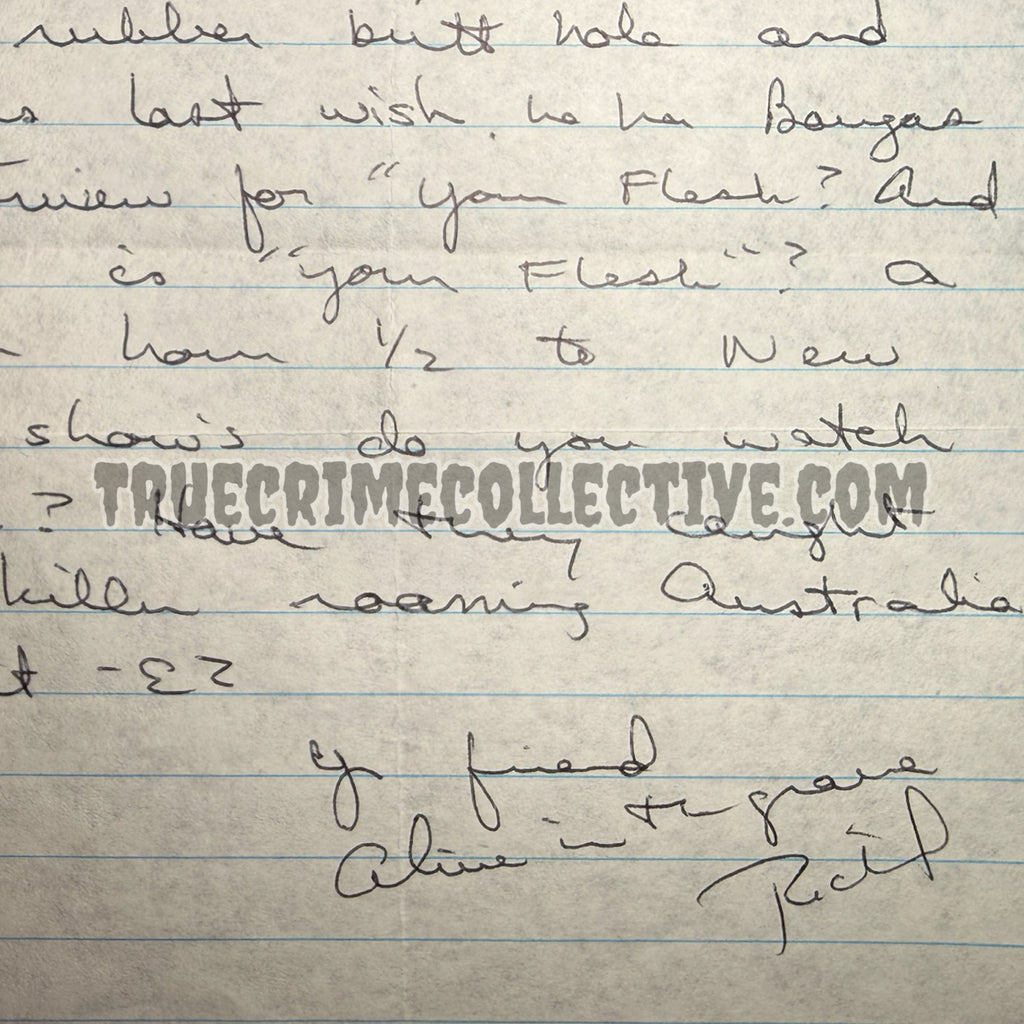 rubber butt hole and
last wish. ha ha Bougas
for "Your Flesh? And
is "your Flesh"? a
hour 1/2 to New
show's do you watch
TRUECRIMECOLLECTIVE.COM
? Have they caught
killer roaming Australia
yr friend
Alive in the grave